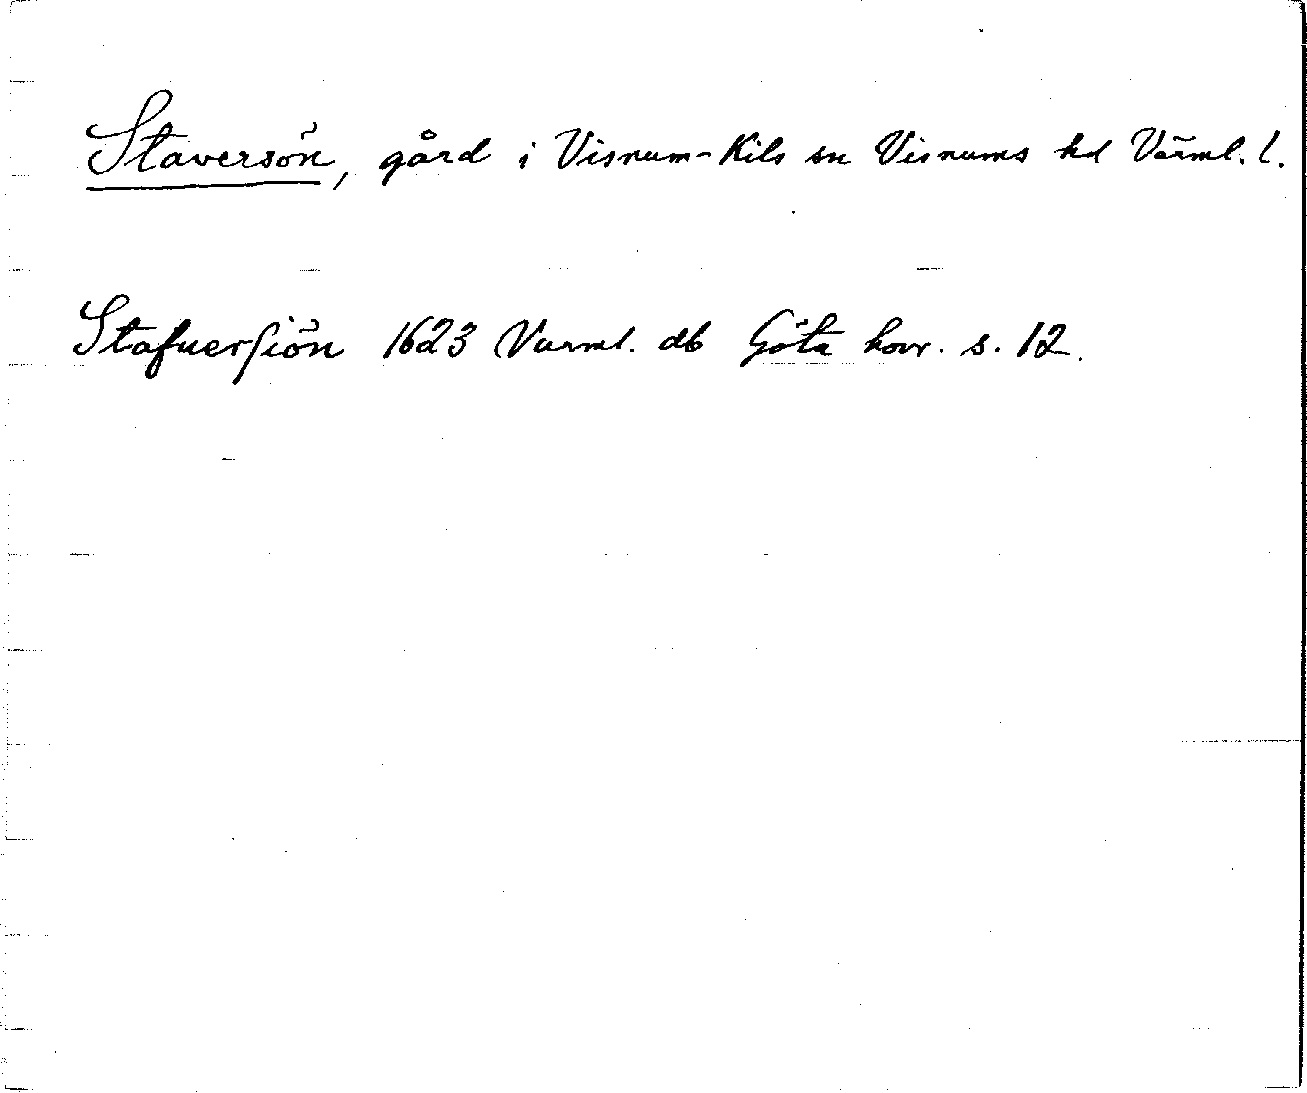 Staversön, gård i Visnum-Kils sn Visnums hd Värml. l.
Stafuersiön 1623 Varml. db Göta hovr. s. 12.